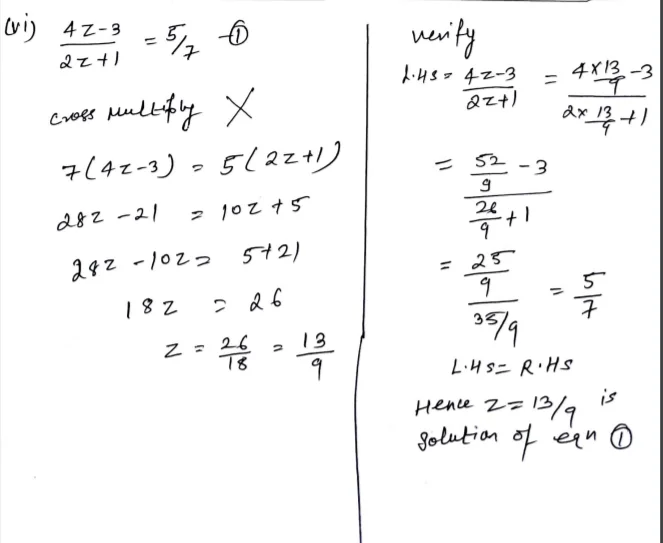 (vi) 4z-3/2z+1 = 5/7 -①
cross multiply X
7(4z-3) = 5(2z+1)
28z -21 = 10z +5
28z -10z = 5+21
18z = 26
z = 26/18 = 13/9
verify
L.HS = 4z-3/2z+1 = 4×13/9 -3 / 2×13/9 +1
= 52/9 -3 / 26/9 +1
= 25/9 / 35/9 = 5/7
L.HS = R.HS
Hence z=13/9 is
solution of eqn ①